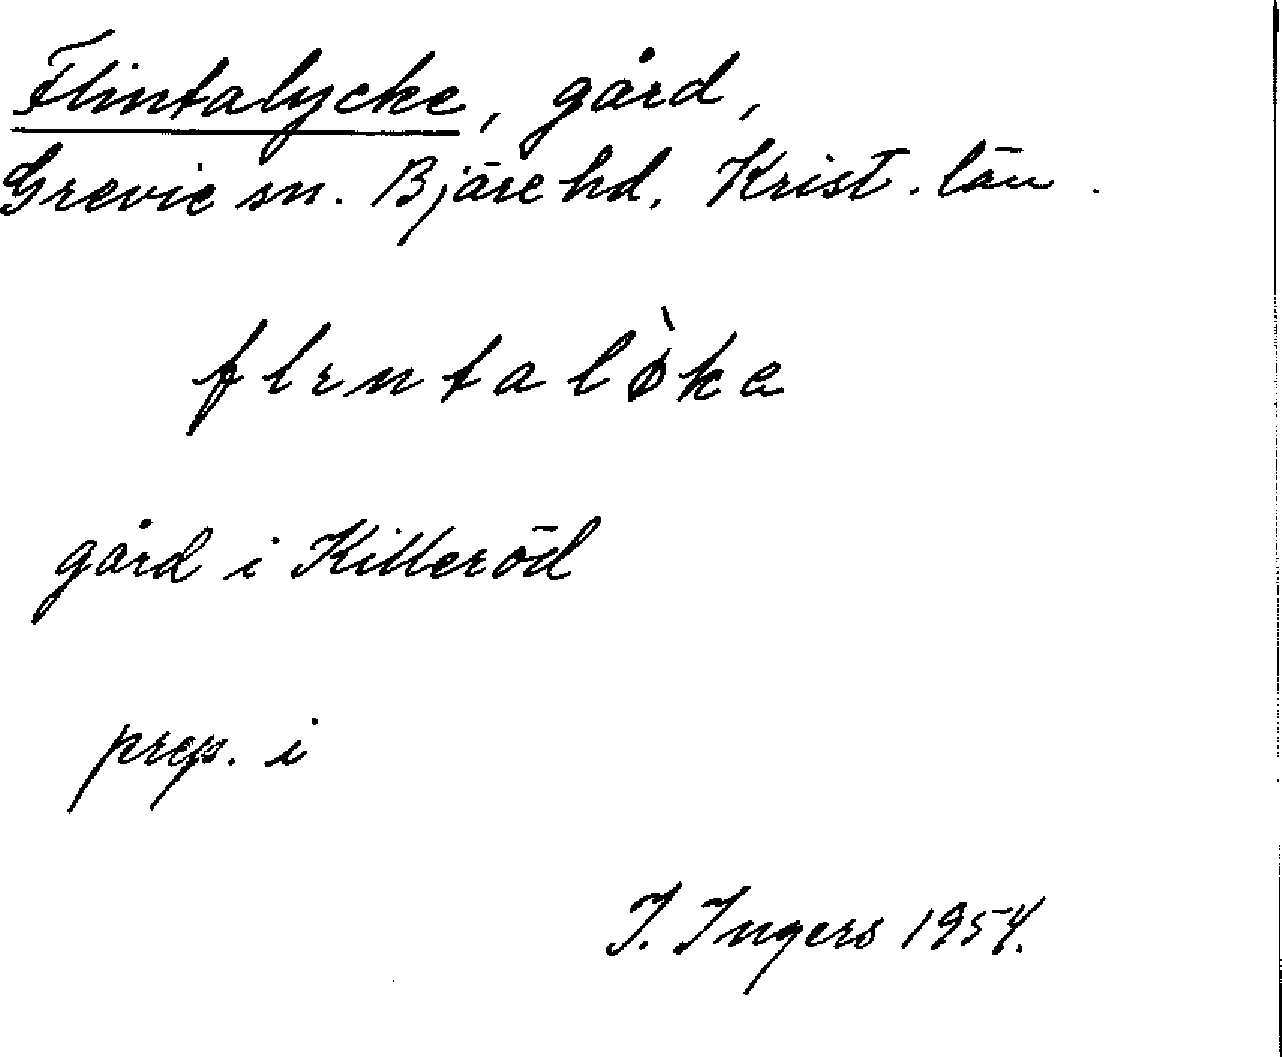 Flintalycke, gård,
Grevie sn. Bjäre hd. Krist. län.
flɪntalø̀ka
gård i Killeröd
prep. i
I. Ingers 1954.